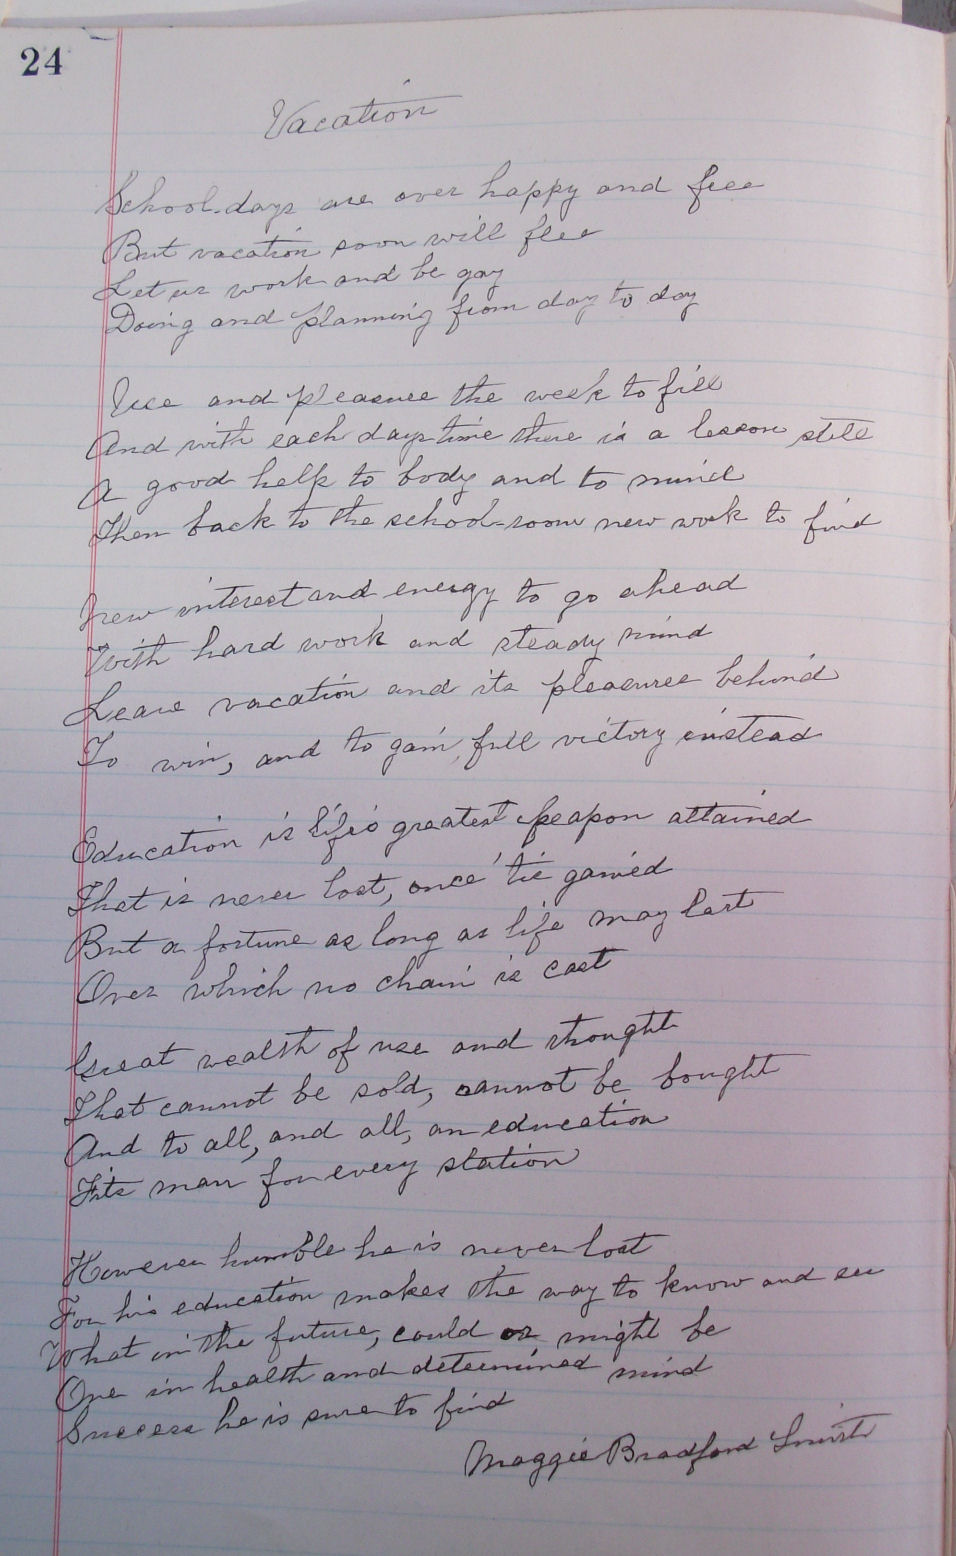 24
Vacation
School-days are over happy and free
But vacation soon will flee
Let us work and be gay
Doing and planning from day to day
Use and pleasure the week to fill
And with each days time there is a lesson still
A good help to body and to mind
Then back to the school-room new work to find
New interest and energy to go ahead
With hard work and steady mind
Leave vacation and its pleasures behind
To win, and to gain, full victory instead
Education is life's greatest weapon attained
That is never lost, once 'tis gained
But a fortune as long as life may last
Over which no chain is cast
Great wealth of use and thought
That cannot be sold, cannot be bought
And to all, and all, an education
Fits man for every station
However humble he is never lost
For his education makes the way to know and see
What in the future, could or might be
One in health and determined mind
Success he is sure to find
Maggie Bradford